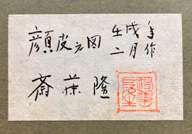 顔皮之図
壬戌年
二月作
斎藤隆